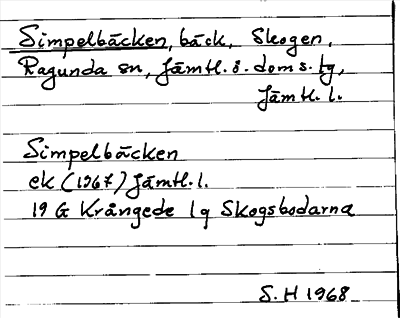 Simpelbäcken, bäck, Skogen,
Ragunda sn, Jämtl. ö. doms. lg,
Jämtl. l.
Simpelbäcken
ek (1967) Jämtl. l.
19 G Krångede l q Skogsbodarna
S. H 1968